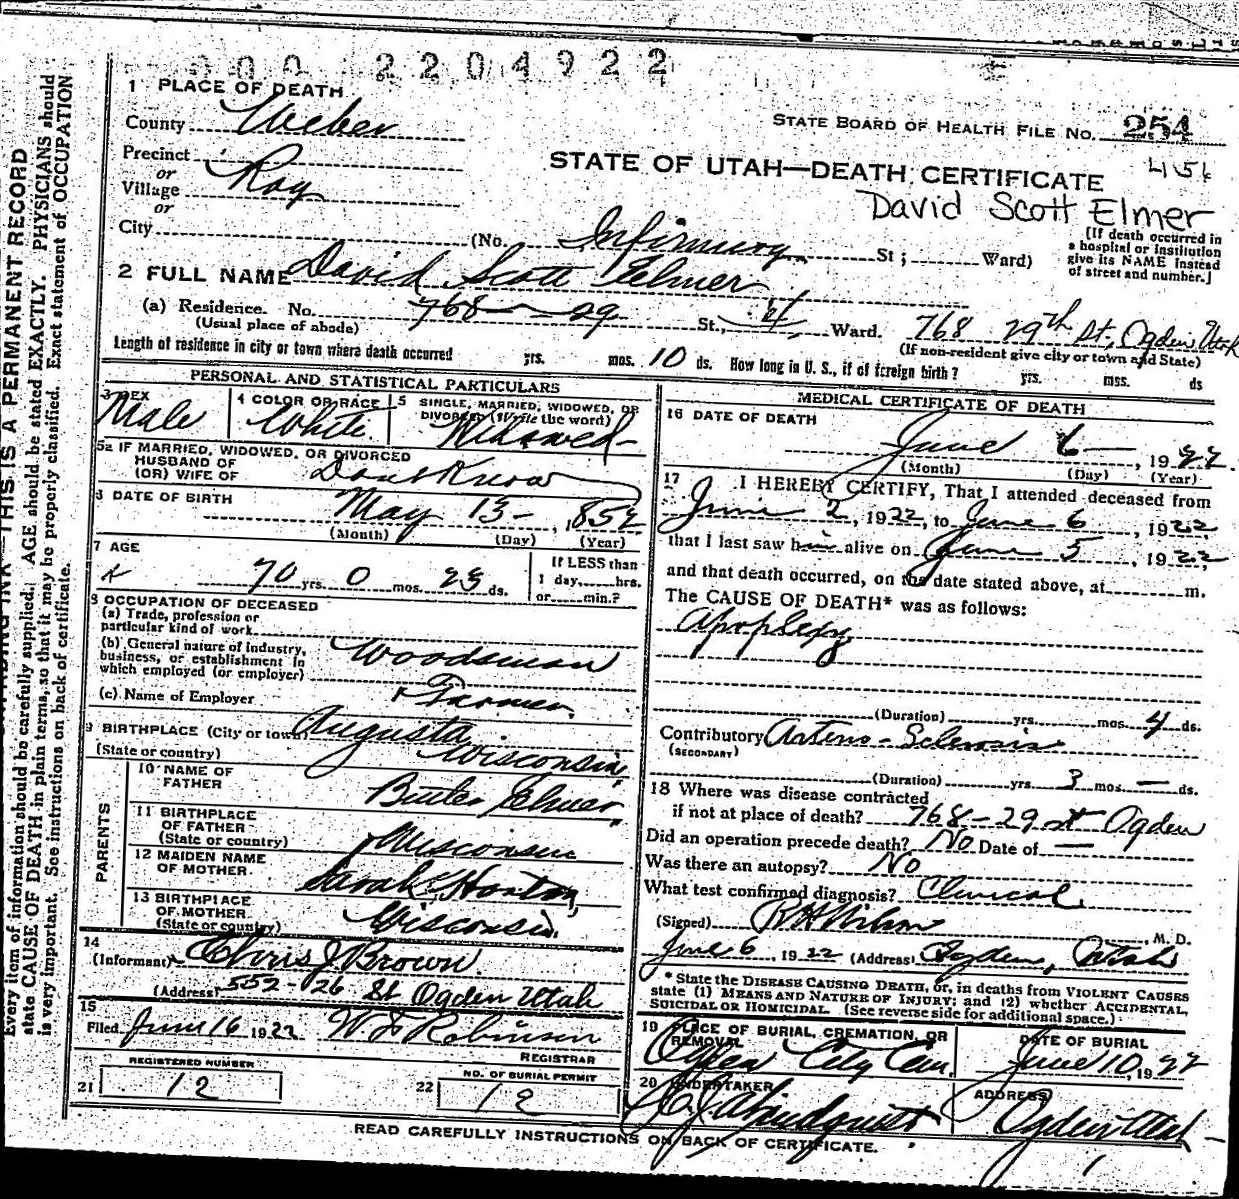 000 2204922
1 PLACE OF DEATH
County Weber
STATE BOARD OF HEALTH FILE NO. 254
Precinct
or
Village Roy
or
STATE OF UTAH—DEATH CERTIFICATE
David Scott Elmer
City (No. Infirmary St; Ward)
[If death occurred in
a hospital or institution
give its NAME instead
of street and number.]
2 FULL NAME David Scott Elmer
(a) Residence. No. 768 - 29 St., Ward. 768 29th St, Ogden Utah
(Usual place of abode) (If non-resident give city or town and State)
Length of residence in city or town where death occurred yrs. mos. 10 ds. How long in U. S., if of foreign birth? yrs. mss. ds
PERSONAL AND STATISTICAL PARTICULARS
3 SEX Male
4 COLOR OR RACE White
5 SINGLE, MARRIED, WIDOWED, OR
DIVORCED (Write the word) Widowed
5a IF MARRIED, WIDOWED, OR DIVORCED
HUSBAND OF
(OR) WIFE OF Dont Know
6 DATE OF BIRTH May 13 - , 1852
(Month) (Day) (Year)
7 AGE 70 yrs. 0 mos. 23 ds.
If LESS than
1 day, hrs.
or min.?
8 OCCUPATION OF DECEASED
(a) Trade, profession or
particular kind of work
(b) General nature of industry,
business, or establishment in
which employed (or employer) Woodsman
(c) Name of Employer + Farmer
9 BIRTHPLACE (City or town) Augusta
(State or country) Wisconsin
PARENTS
10 NAME OF
FATHER Butler Elmer
11 BIRTHPLACE
OF FATHER
(State or country) Wisconsin
12 MAIDEN NAME
OF MOTHER Sarah Horton
13 BIRTHPLACE
OF MOTHER
(State or country) Wisconsin
14
(Informant) Chris J Brown
(Address) 552 - 26 St Ogden Utah
15
Filed June 16 1922 Robinson
REGISTRAR
REGISTERED NUMBER
21 12
NO. OF BURIAL PERMIT
22 12
MEDICAL CERTIFICATE OF DEATH
16 DATE OF DEATH
June 6 , 1922
(Month) (Day) (Year)
17 I HEREBY CERTIFY, That I attended deceased from
June 2, 1922, to June 6, 1922,
that I last saw him alive on June 5, 1922,
and that death occurred, on the date stated above, at m.
The CAUSE OF DEATH* was as follows:
Apoplexy
(Duration) yrs. mos. 4 ds.
Contributory Arterio-Sclerosis
(SECONDARY)
(Duration) yrs 3 mos — ds.
18 Where was disease contracted
if not at place of death? 768 - 29 st Ogden
Did an operation precede death? No Date of —
Was there an autopsy? No
What test confirmed diagnosis? Clinical
(Signed) , M. D.
June 6, 1922 (Address) Ogden, Utah
* State the DISEASE CAUSING DEATH, or, in deaths from VIOLENT CAUSES
state (1) MEANS AND NATURE OF INJURY; and (2) whether ACCIDENTAL,
SUICIDAL OR HOMICIDAL. (See reverse side for additional space.)
19 PLACE OF BURIAL, CREMATION, OR
REMOVAL
Ogden City Cem.
DATE OF BURIAL
June 10, 1922
20 UNDERTAKER
Lindquist
ADDRESS
Ogden Utah
READ CAREFULLY INSTRUCTIONS ON BACK OF CERTIFICATE.
THIS IS A PERMANENT RECORD
Every item of information should be carefully supplied. AGE should be stated EXACTLY. PHYSICIANS should
state CAUSE OF DEATH in plain terms, so that it may be properly classified. Exact statement of OCCUPATION
is very important. See instructions on back of certificate.